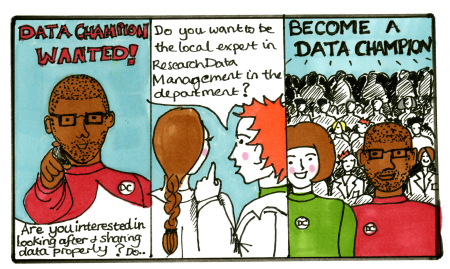 DATA CHAMPION
WANTED!
DC
Are you interested in
looking after & sharing
data properly? Do..
Do you want to be
the local expert in
Research Data
Management in the
department?
BECOME A
DATA CHAMPION
DC
DC